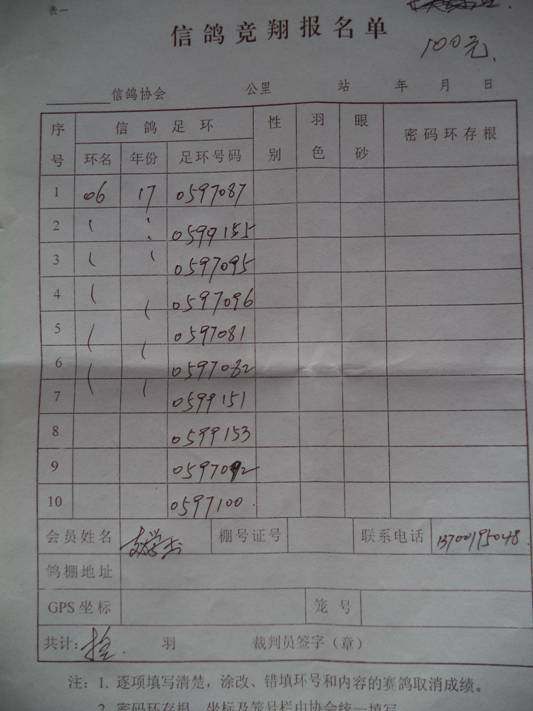 表一
信鸽竞翔报名单
100元.
信鸽协会 公里 站 年 月 日
序号 信鸽足环 性别 羽色 眼砂 密码环存根
环名 年份 足环号码
1 06 17 0597087
2 0599155
3 0597095
4 0597096
5 0597081
6 0597082
7 0599151
8 0599153
9 0597092
10 0597100.
会员姓名 棚号证号 联系电话 13700195048.
鸽棚地址
GPS坐标 笼号
共计: 羽 裁判员签字（章）
注：1. 逐项填写清楚，涂改、错填环号和内容的赛鸽取消成绩。
2. 密码环存根、坐标及笼号栏由协会统一填写